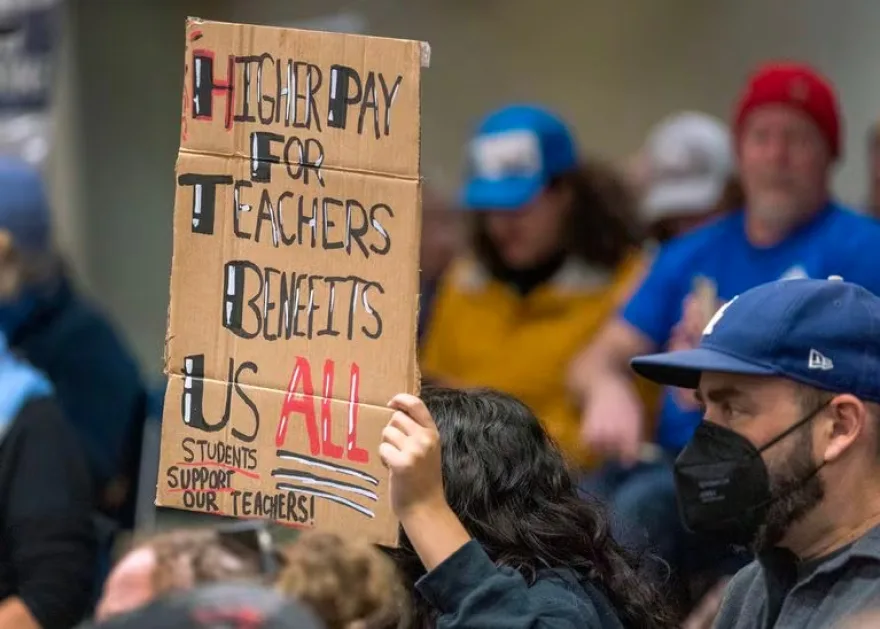 HIGHER PAY
FOR
TEACHERS
BENEFITS
US ALL
STUDENTS
SUPPORT
OUR TEACHERS!